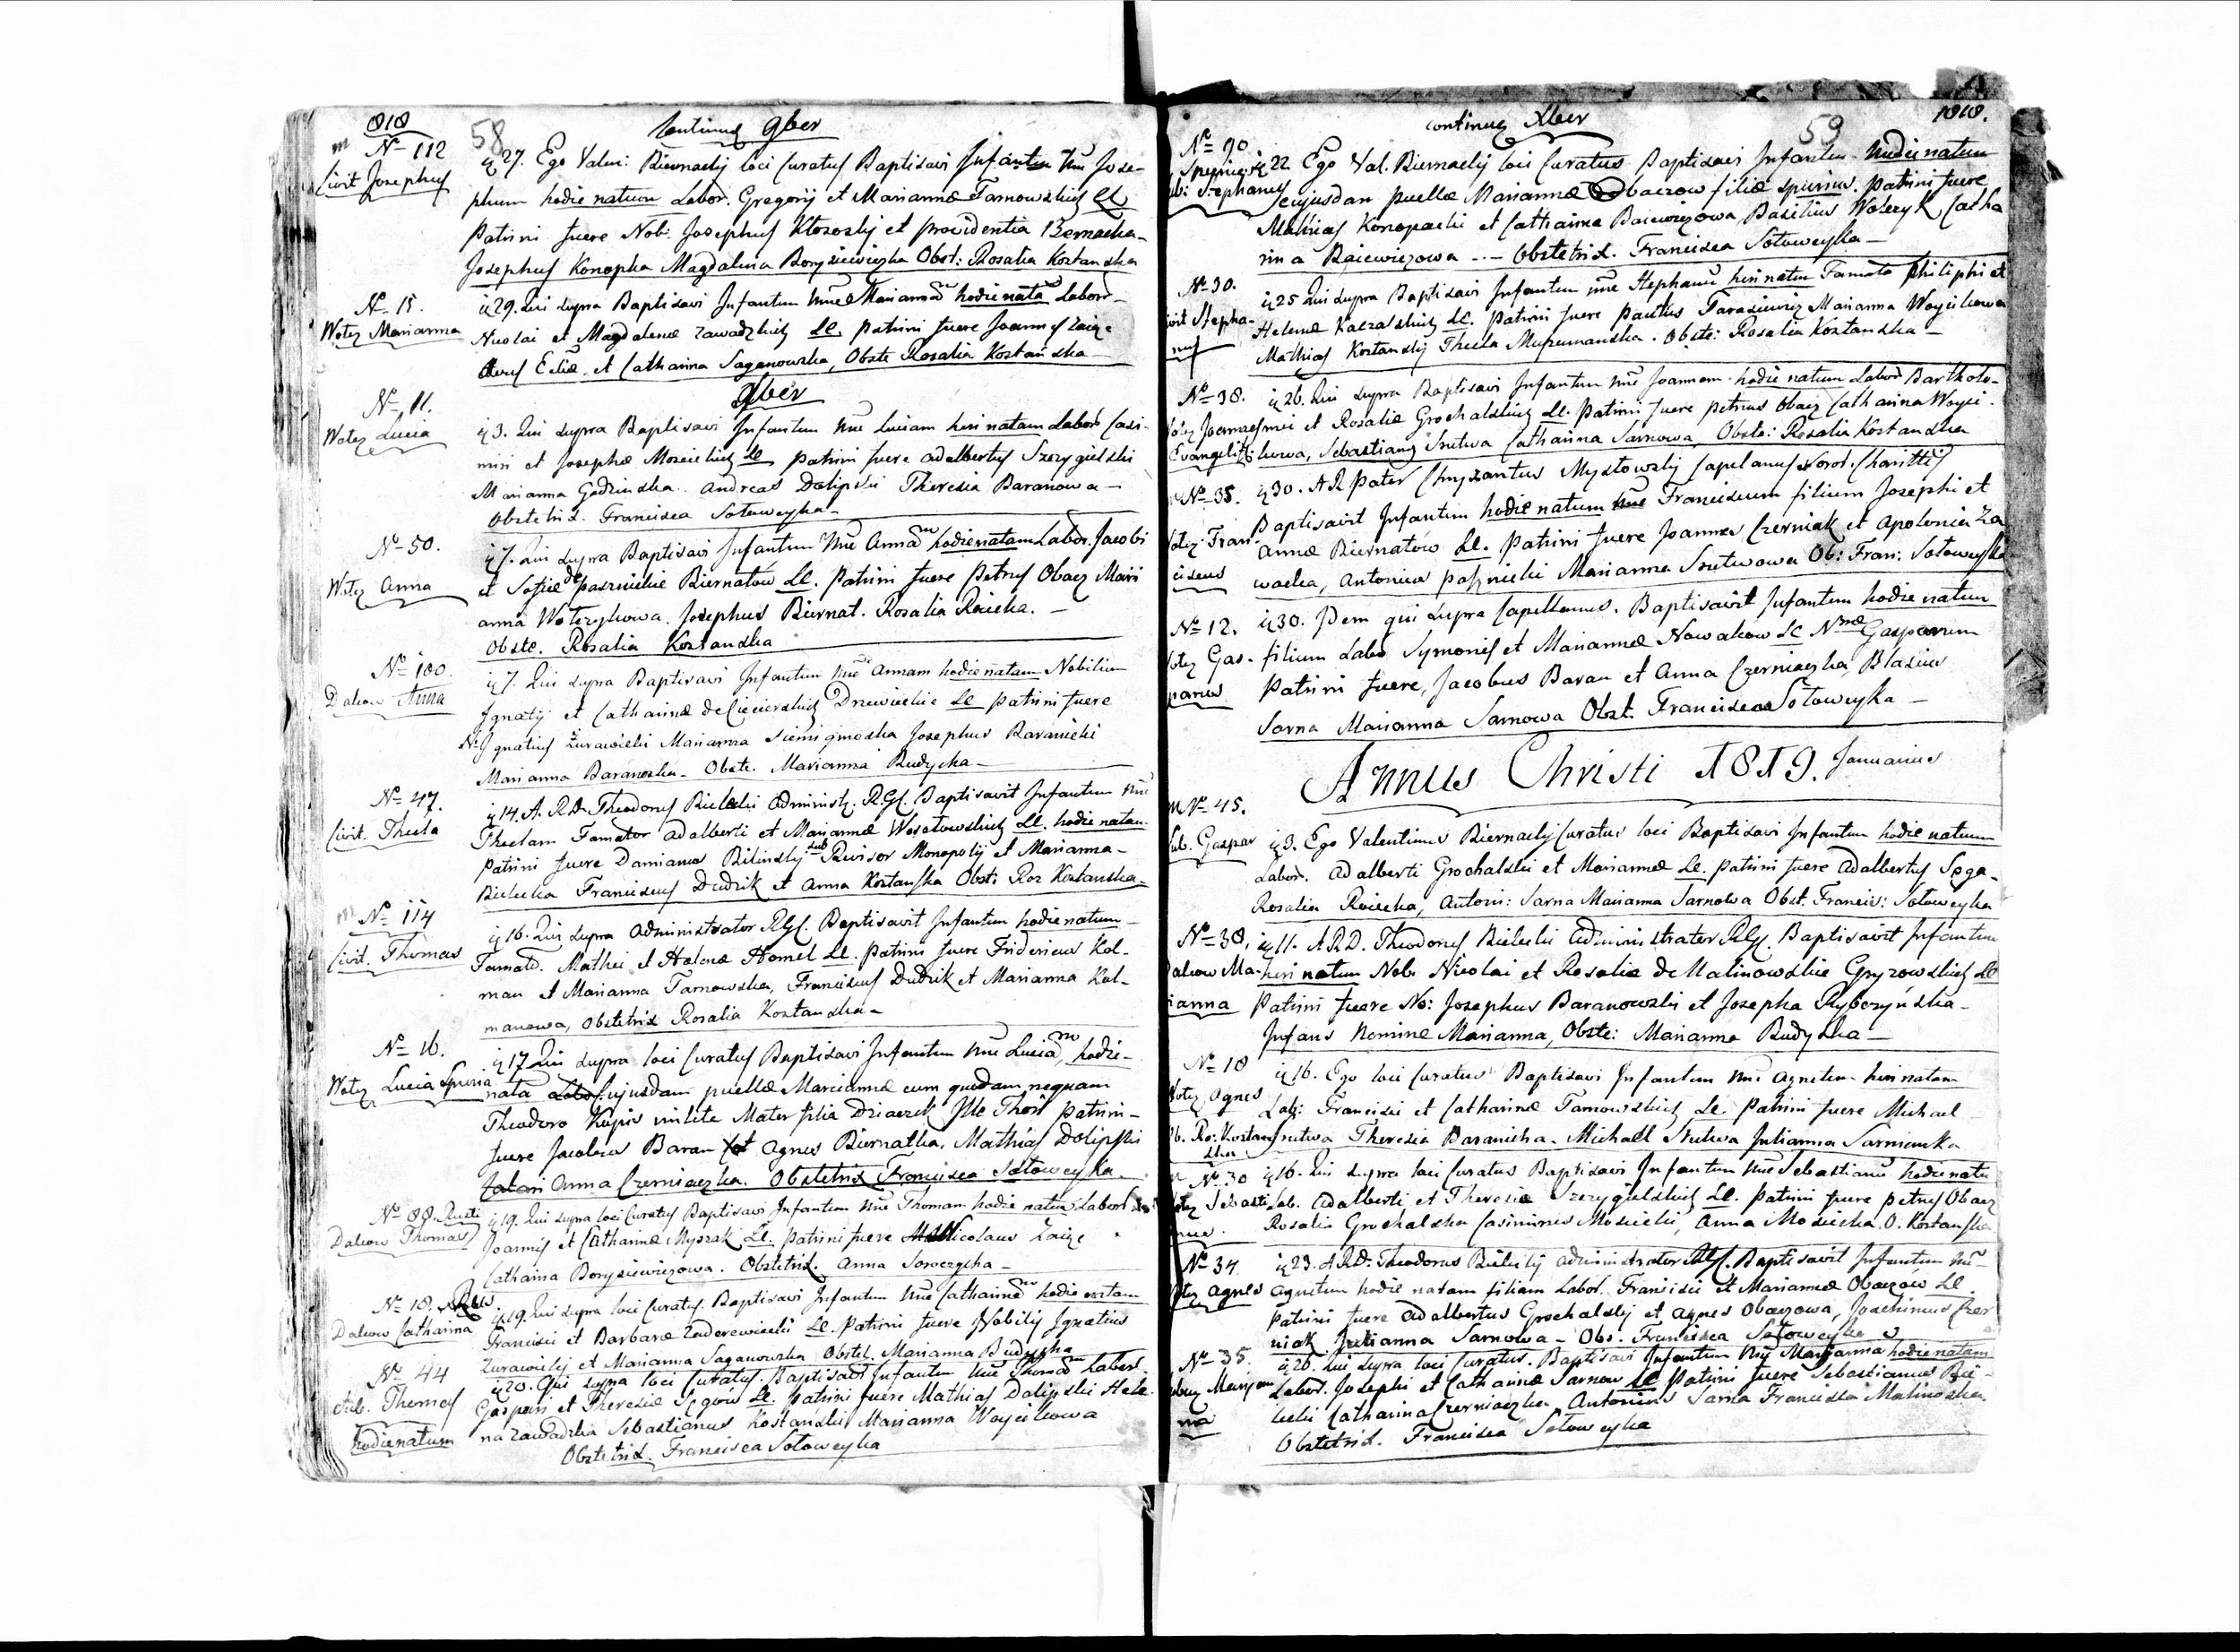 818
58
Continuo 9ber
m
N- 112
Civit Josephus
27. Ego Valen: Biernacky loci Curatus Baptisavi Infantem Nne Jose-
phum hodie natum Labor. Gregorij et Marianna Tarnowskich LC
Patrini fuere Nob: Josephus Kłososky et providentia Bernacka-
Josephus Konopka Magdalena Borysiewiczka Obst: Rosalia Kostanska
N- 15.
Wotez Marianna
29. Qui supra Baptisavi Infantem Nne Mariannam hodie nata Labor-
Nicolai et Magdalena Zawadzkich LC. Patrini fuere Joannes
et Catharina Saganowska, Obste Rosalia Kostanska
Xber
N- 11.
Wotez Lucia
3. Qui supra Baptisavi Infantem Nne Luciam heri natam Labor Casi-
miri et Josepha Moscickich LC Patrini fuere adalbertus Szczygielski
Marianna Godzinska. Andreas Dolipski Theresia Baranowa -
Obstetrix. Francisca Sołoweyka-
N- 50.
Wotez Anna
7. Qui supra Baptisavi Infantem Nne Annam hodie natam Labor. Jacobi
et Sofiæ de Pasznickie Biernatow LC. Patrini fuere Petrus Obacz Mari
anna Wołczykowa. Josephus Biernat. Rosalia Roicka. -
Obste. Rosalia Kostanska
N- 100.
Dalców Anna
7. Qui supra Baptisavi Infantem Nne Annam hodie natam Nobilium
Ignatij et Catharina de Cieciershich Drzewieckie LC Patrini fuere
N. Ignatius Zurawicki Marianna Josephus Baranicki
Marianna Baranoska- Obste. Marianna Rudycka-
N- 47.
Civit. Thecla
14. A. R.D. Theodorus Bielecki Administ. R.G. Baptisavit Infantem Nne
Theclam Famator Adalberti et Marianna Wosatowskich LC. hodie natam
Patrini fuere Damianus Bilinsky sub Revisor Monopolij et Marianna-
Bielecka Franciscus Dudzik et Anna Kostanska Obst: Roz Kostanska-
m
N- 114
Civit. Thomas
16. Qui supra Administrator R.G. Baptisavit Infantem hodie natum
Famato. Mathei et Helena Homel LC. Patrini fuere Fridericus Kol-
man et Marianna Tarnowska, Franciscus Dudzik et Marianna Kol-
manowa, Obstetrix Rosalia Kostanska-
N- 16.
Wotez Lucia Spuria
17 Qui supra loci Curatus Baptisavi Infantem Nne Luciam, hodie-
nata cujusdam puellæ Marianna cum quodam nequam
Theodoro Kupis milite Mater filia Dziaczek Patrini-
fuere Jacobus Baran et Agnes Biernatka. Mathias Dolipski
Anna Czerniaczka. Obstetrix Francisca Sołoweyka-
N- 88. Rusti
Dalców Thomas
19. Qui supra loci Curatus Baptisavi Infantem Nne Thomam hodie natum Labor
Joannis et Catharina Myszak LC. Patrini fuere Nicolaus
Catharina Borysiewiczowa. Obstetrix. Anna
N- 18.
Dalców Catharina
19. Qui supra loci Curatus Baptisavi Infantem Nne Catharinam hodie natam
Francisci et Barbara Zaderewiecki LC. Patrini fuere Nobilij Ignatius
Zurawicki et Marianna Saganowska Obstet. Marianna Rudycka
N- 44
Thomas
hodie natum
20. Qui supra loci Curatus Baptisavi Infantem Nne Thomam Labor.
Gaspari et Theresiæ LC. Patrini fuere Mathias Dolipski Hele
na Zawadzka Sebastianus Kostanski Marianna Woycikowa
Obstetrix. Francisca Sołoweyka
continuo Xber
59
1818.
N- 90
Stephanus
22. Ego Val. Biernacky loci Curatus Baptisavi Infantem hodie natum
cujusdam puellæ Marianna Obaczow filiæ spurius. Patrini fuere
Mathias Konopacki et Catharina Baiewiczowa, Basilius Wołczyk Catha
rina Baiewiczowa --- Obstetrix. Francisca Sołoweyka-
N- 30.
Civit Stepha-
nus
25 Qui supra Baptisavi Infantem Nne Stephanum heri natum Famato Philiphi et
Helena LC. Patrini fuere Paulus Tarasiewicz Marianna Woycikowa
Mathias Kostansky Thecla Muzumanska. Obste: Rosalia Kostanska-
N- 38.
Wotez Joannes
Evangelist
26. Qui supra Baptisavi Infantem Nne Joannem hodie natum Labor Bartholo-
mei et Rosalia Grochalskich LC. Patrini fuere Petrus Obacz Catharina Woyci-
kowa, Sebastianus Snitwa Catharina Sarnowa Obste: Rosalia Kostanska
N- 35.
Wotez Fran-
ciscus
30. A R Pater Chrysantus Mystowsky Capelanus Soror. Charitt
Baptisavit Infantem hodie natum Nne Franciscum filium Josephi et
Anna Biernatów LC. Patrini fuere Joannes Czerniak et Apolonia Za
wacka, Antonius Paszniecki Marianna Snitwowa Ob: Fran: Sołoweyka
N- 12.
Wotez Gas-
parus
30. Idem qui supra Capellanus. Baptisavit Infantem hodie natum
filium Labo Symonis et Marianna Nowakow LC Nne Gasparum
Patrini fuere, Jacobus Baran et Anna Czerniaczka, Blasius
Sarna Marianna Sarnowa Obst. Francisca Sołoweyka-
Annus Christi 1819. Januarius
N- 45.
Gaspar
3. Ego Valentinus Biernacky Curatus loci Baptisavi Infantem hodie natum
Labor. Adalberti Grochalski et Marianna LC. Patrini fuere Adalbertus
Rosalia Roicka, Antoni: Sarna Marianna Sarnowa Obst. Francis: Sołoweyka
N- 38,
Dalców Ma-
rianna
11. A R.D. Theodorus Bielecki Administrator R.G. Baptisavit Infantem
heri natum Nob. Nicolai et Rosalia de Malinowskie Gryzowskich LC
Patrini fuere No: Josephus Baranowski et Josepha Ryboczyńska-
Infans Nomine Marianna, Obste: Marianna Rudycka-
N- 18
Wotez Agnes
Ob. Ro: Kostan
ska
16. Ego loci Curatus Baptisavi Infantem Nne Agnetem heri natam
Lab: Francisci et Catharina Tarnowskich LC. Patrini fuere Michael
Snitwa Theresia Baranicka. Michael Snitwa Julianna Sarnianka
N- 30
Wotez Sebasti
nus.
16. Qui supra loci Curatus Baptisavi Infantem Nne Sebastianum hodie natu
Lab. Adalberti et Theresia Szczygielskich LC. Patrini fuere Petrus Obacz
Rosalia Grochalska Casimirus Moscicki, Anna Moscicka. O. Kostanska
N- 34.
Wotez Agnes
23. A.R.D. Theodorus Bielecky Administrator R.G. Baptisavit Infantem Nne
Agnetem hodie natam filiam Labor. Francisci et Marianna Obaczów LC
Patrini fuere Adalbertus Grochalsky et Agnes Obaczowa, Joachimus Czer
niak Julianna Sarnowa- Obs. Francisca Sołoweyka
N- 35.
Marian
na
26. Qui supra loci Curatus Baptisavi Infantem Nne Marianna hodie natam
Labor. Josephi et Catharina Sarnow LC Patrini fuere Sebastianus Bie-
lecki Catharina Czerniaczka Antonius Sarna Francisca Malinoska
Obstetrix. Francisca Sołoweyka